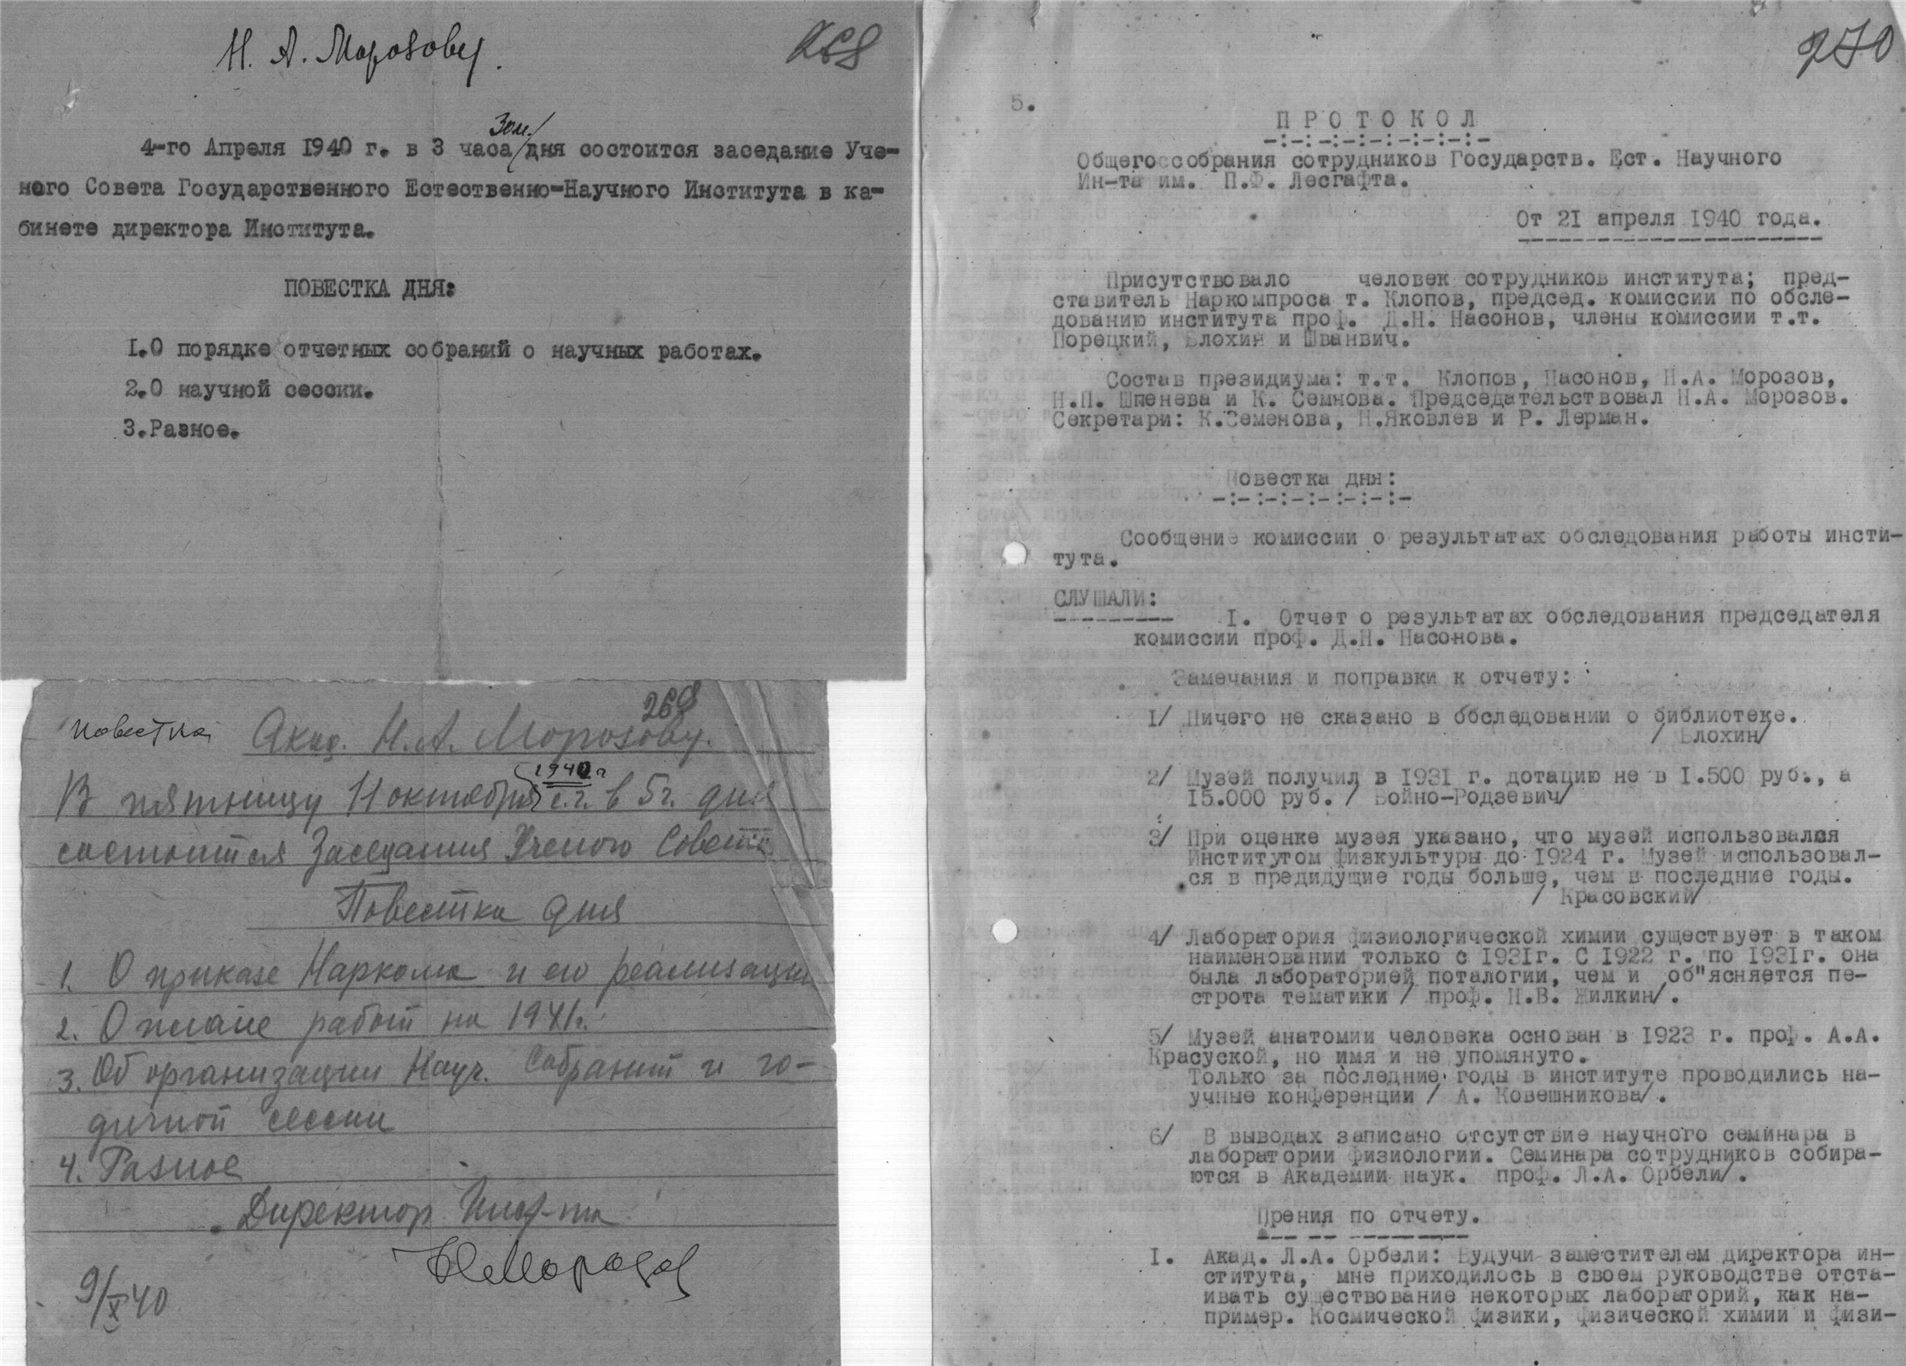 Н. А. Морозову.
268
30 м.
4-го Апреля 1940 г. в 3 часа/дня состоится заседание Уче-
ного Совета Государственного Естественно-Научного Института в ка-
бинете директора Института.
ПОВЕСТКА ДНЯ:
1.О порядке отчетных собраний о научных работах.
2.О научной сессии.
3.Разное.
269
повестка Акад. Н.А. Морозову.
1940 г
В пятницу 11 октября с.г. в 5 г. дня
состоится Заседания Ученого Совета
Повестка дня
1. О приказе Наркома и его реализации
2. О плане работ на 1941 г.
3. Об организации Науч. Собраний и го-
дичной сессии
4. Разное
Директор Инст-та
Н Морозов
9/X 40
270
5.
ПРОТОКОЛ
-:-:-:-:-:-:-:-:-
Общего собрания сотрудников Государств. Ест. Научного
Ин-та им. П.Ф. Лесгафта.
От 21 апреля 1940 года.
Присутствовало человек сотрудников института; пред-
ставитель Наркомпроса т. Клопов, председ. комиссии по обсле-
дованию института проф. Д.Н. Насонов, члены комиссии т.т.
Порецкий, Блохин и Шванвич.
Состав президиума: т.т. Клопов, Насонов, Н.А. Морозов,
Н.П. Шпенева и К. Семнова. Председательствовал Н.А. Морозов.
Секретари: К.Семенова, Н.Яковлев и Р. Лерман.
Повестка дня:
-:-:-:-:-:-:-:-
Сообщение комиссии о результатах обследования работы инсти-
тута.
СЛУШАЛИ:
I. Отчет о результатах обследования председателя
комиссии проф. Д.Н. Насонова.
Замечания и поправки к отчету:
1/ Ничего не сказано в обследовании о библиотеке.
/ Блохин/
2/ Музей получил в 1931 г. дотацию не в 1.500 руб., а
15.000 руб. / Войно-Родзевич/
3/ При оценке музея указано, что музей использовался
Институтом физкультуры до 1924 г. Музей использовал-
ся в предидущие годы больше, чем в последние годы.
/ Красовский/
4/ Лаборатория физиологической химии существует в таком
наименовании только с 1931г. С 1922 г. по 1931г. она
была лабораторией поталогии, чем и об"ясняется пе-
строта тематики / проф. Н.В. Жилкин/.
5/ Музей анатомии человека основан в 1923 г. проф. А.А.
Красуской, но имя и не упомянуто.
Только за последние годы в институте проводились на-
учные конференции / А. Ковешникова/.
6/ В выводах записано отсутствие научного семинара в
лаборатории физиологии. Семинара сотрудников собира-
ются в Академии наук. проф. Л.А. Орбели/.
Прения по отчету.
I. Акад. Л.А. Орбели: Будучи заместителем директора ин-
ститута, мне приходилось в своем руководстве отста-
ивать существование некоторых лабораторий, как на-
пример. Космической физики, физической химии и физи-